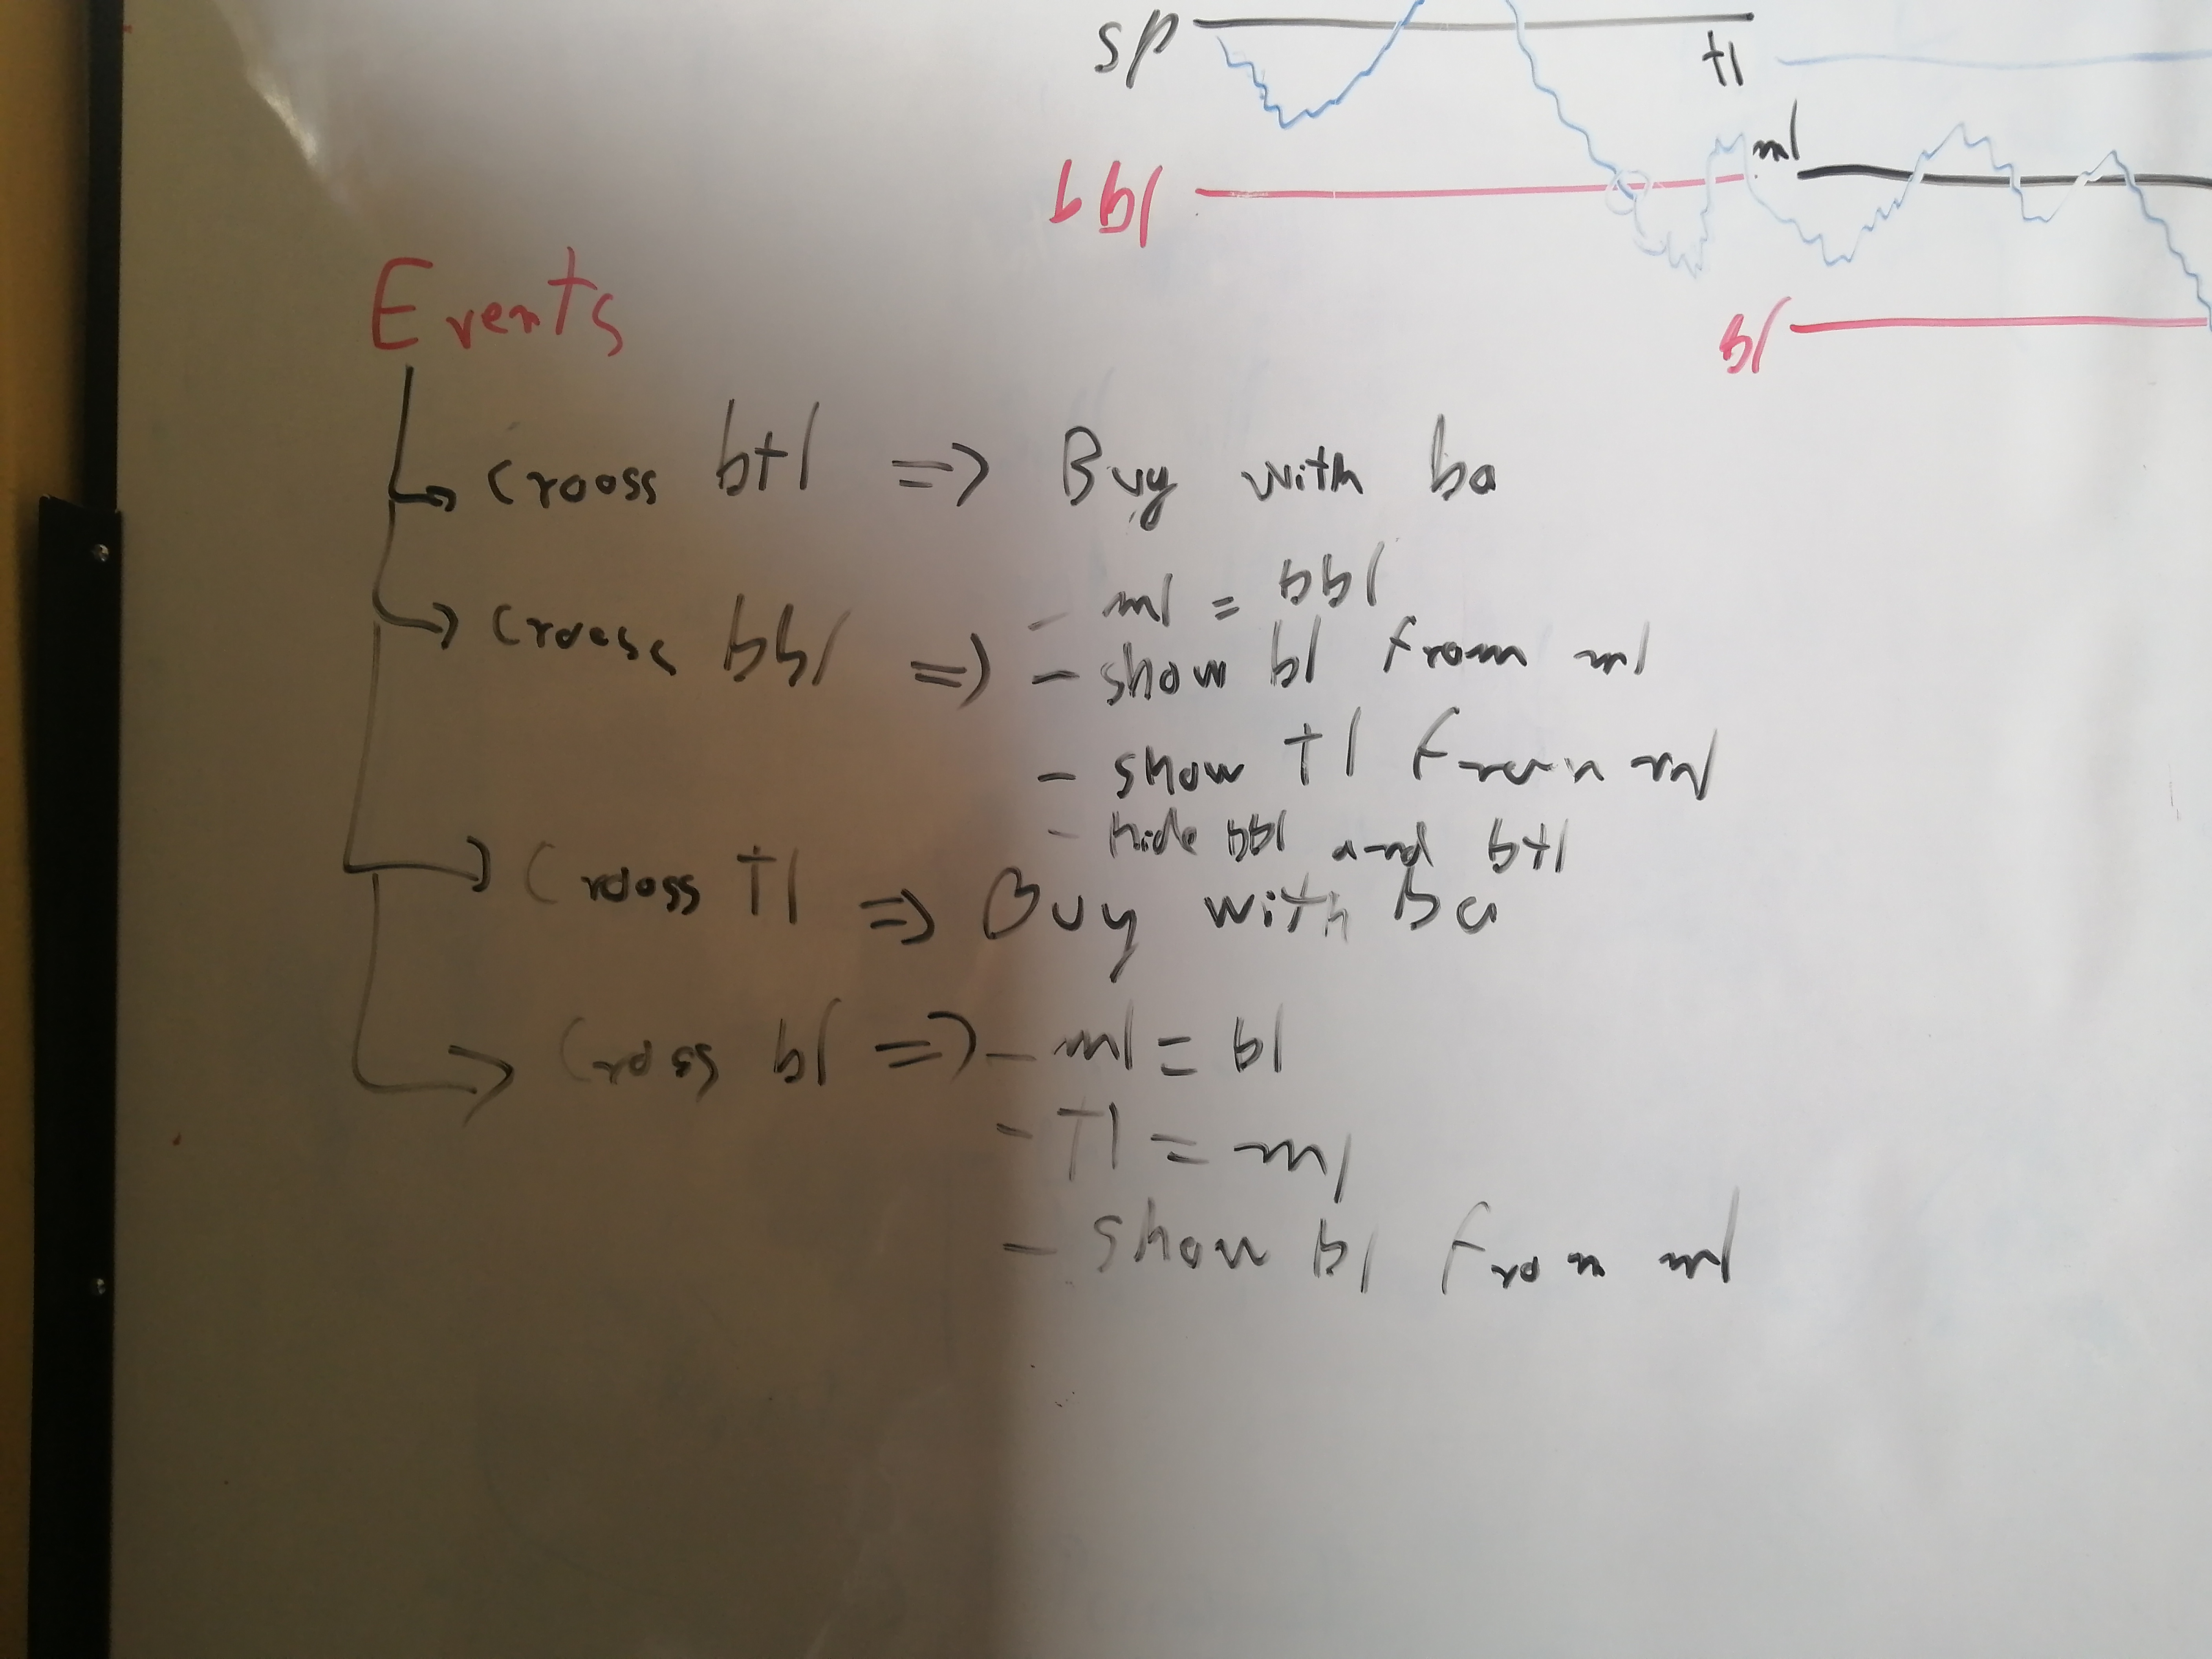 sp
tl
ml
bbl
bl
Events
Crooss btl => Buy with ba
- ml = bbl
Crooss bbl => - show bl from ml
- show Tl from ml
- hide bbl and btl
Crooss Tl => Buy with Ba
Cross bl => - ml = bl
- Tl = ml
- show bl from ml